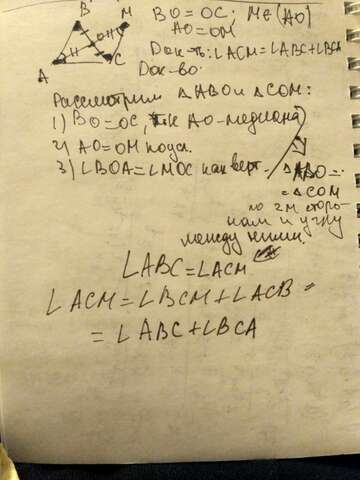 B M
BO = OC; M∈(AO)
AO = OM
Док-ть: ∠ACM = ∠ABC + ∠BCA
A H C
Док-во:
Рассмотрим △ABO и △COM:
1) BO = OC, т.к AO - медиана
2) AO = OM по усл.
3) ∠BOA = ∠MOC как верт.
△ABO =
= △COM
по 2м сторо-
нам и углу
между ними.
∠ABC = ∠ACM
∠ACM = ∠BCM + ∠ACB =
= ∠ABC + ∠BCA